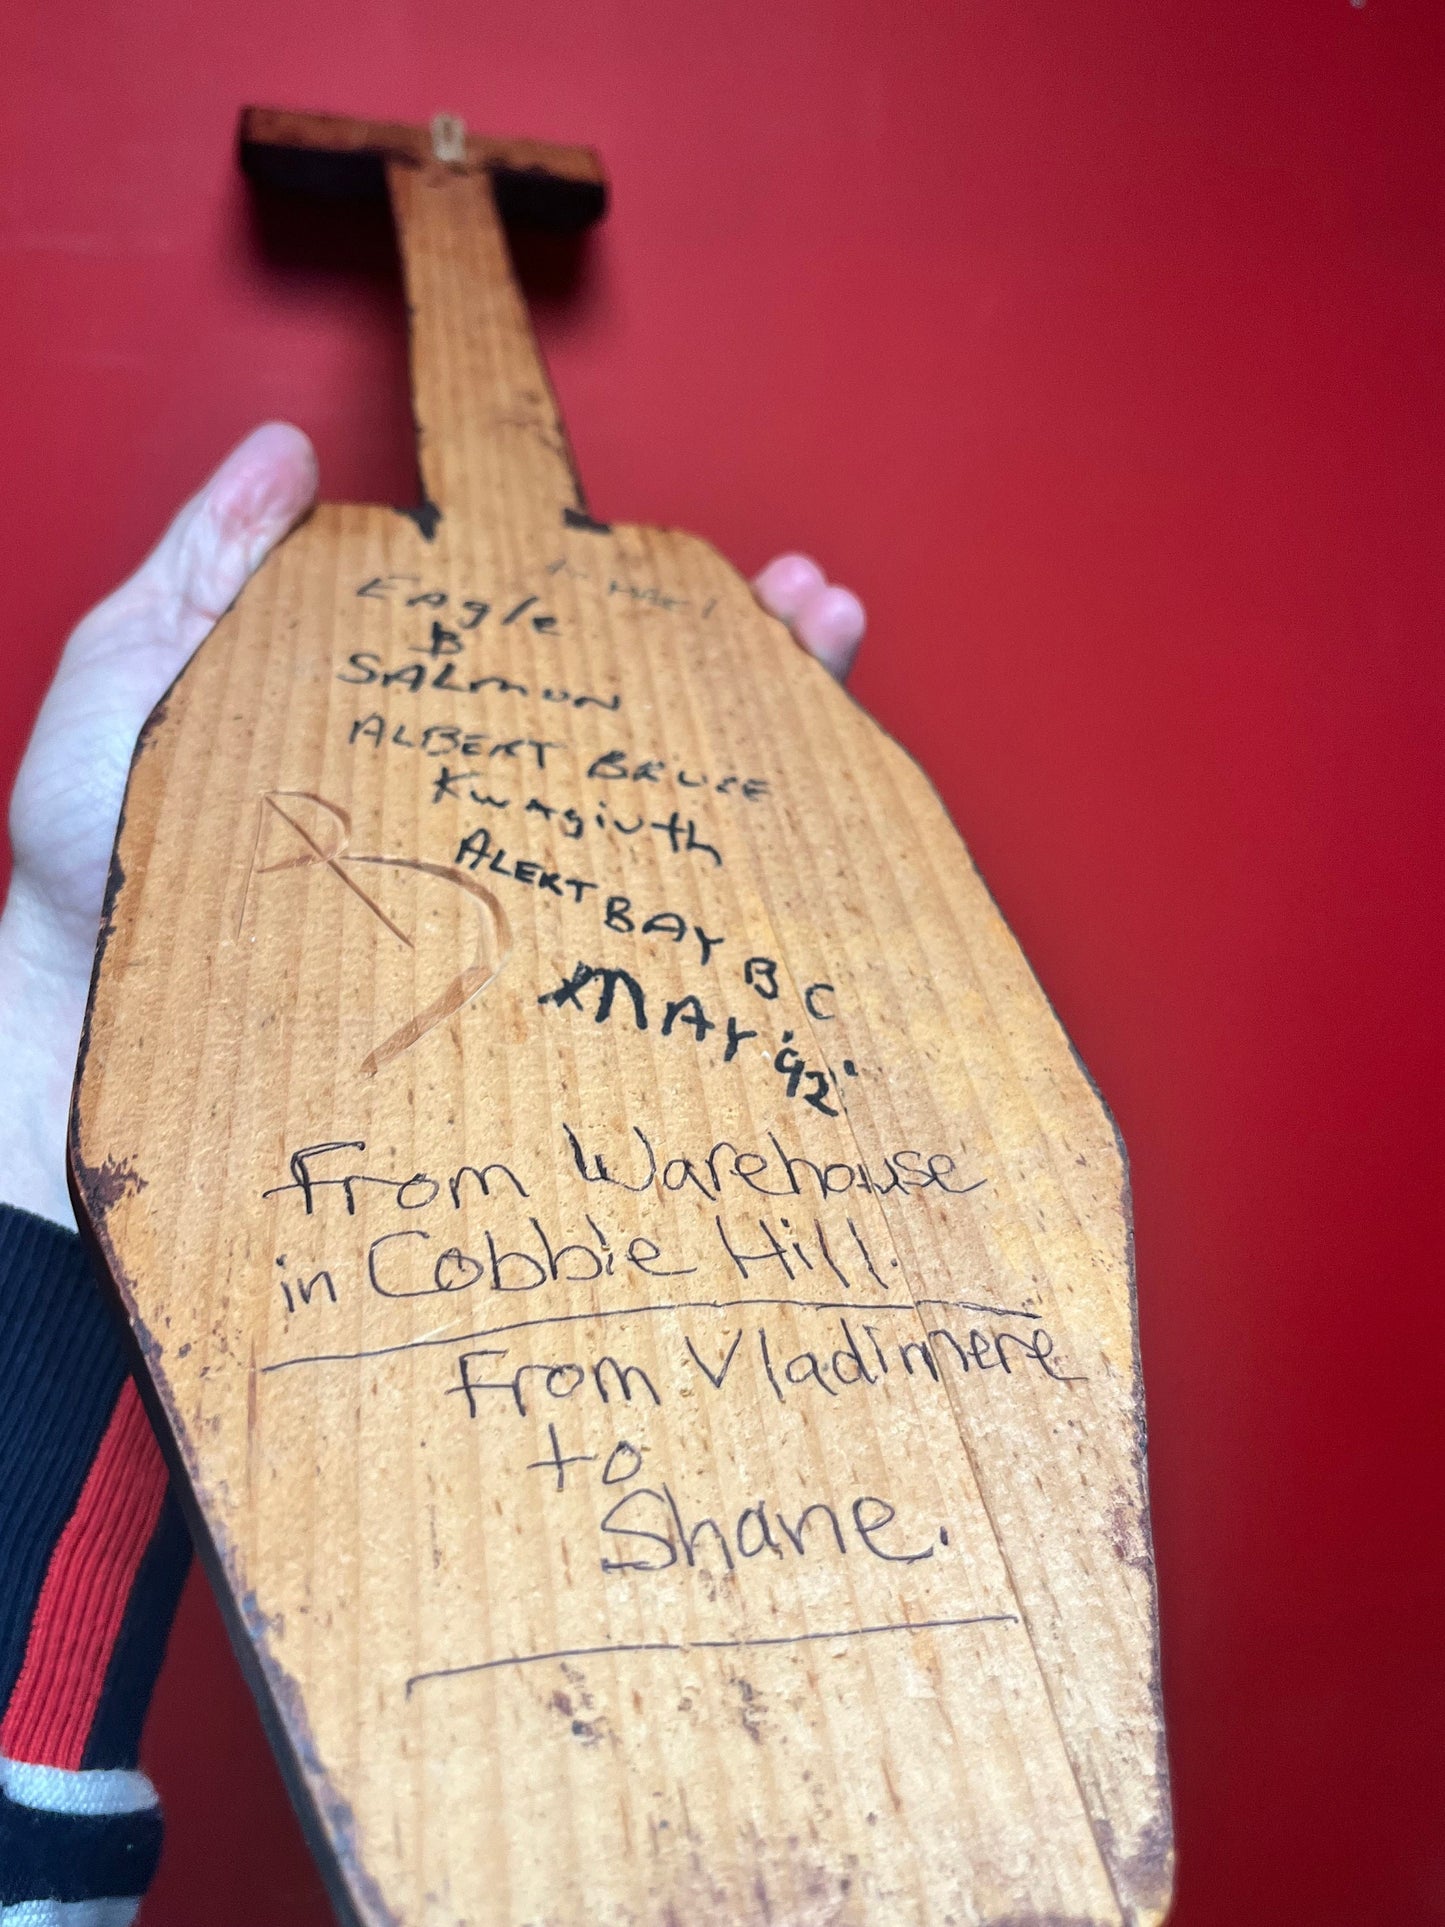 EAgle
&
SALmon
ALBERT BRUCE
Kwagiuth
ALERT BAY B C
MAY '92'
From Warehouse
in Cobble Hill.
From Vladimere
to
Shane.